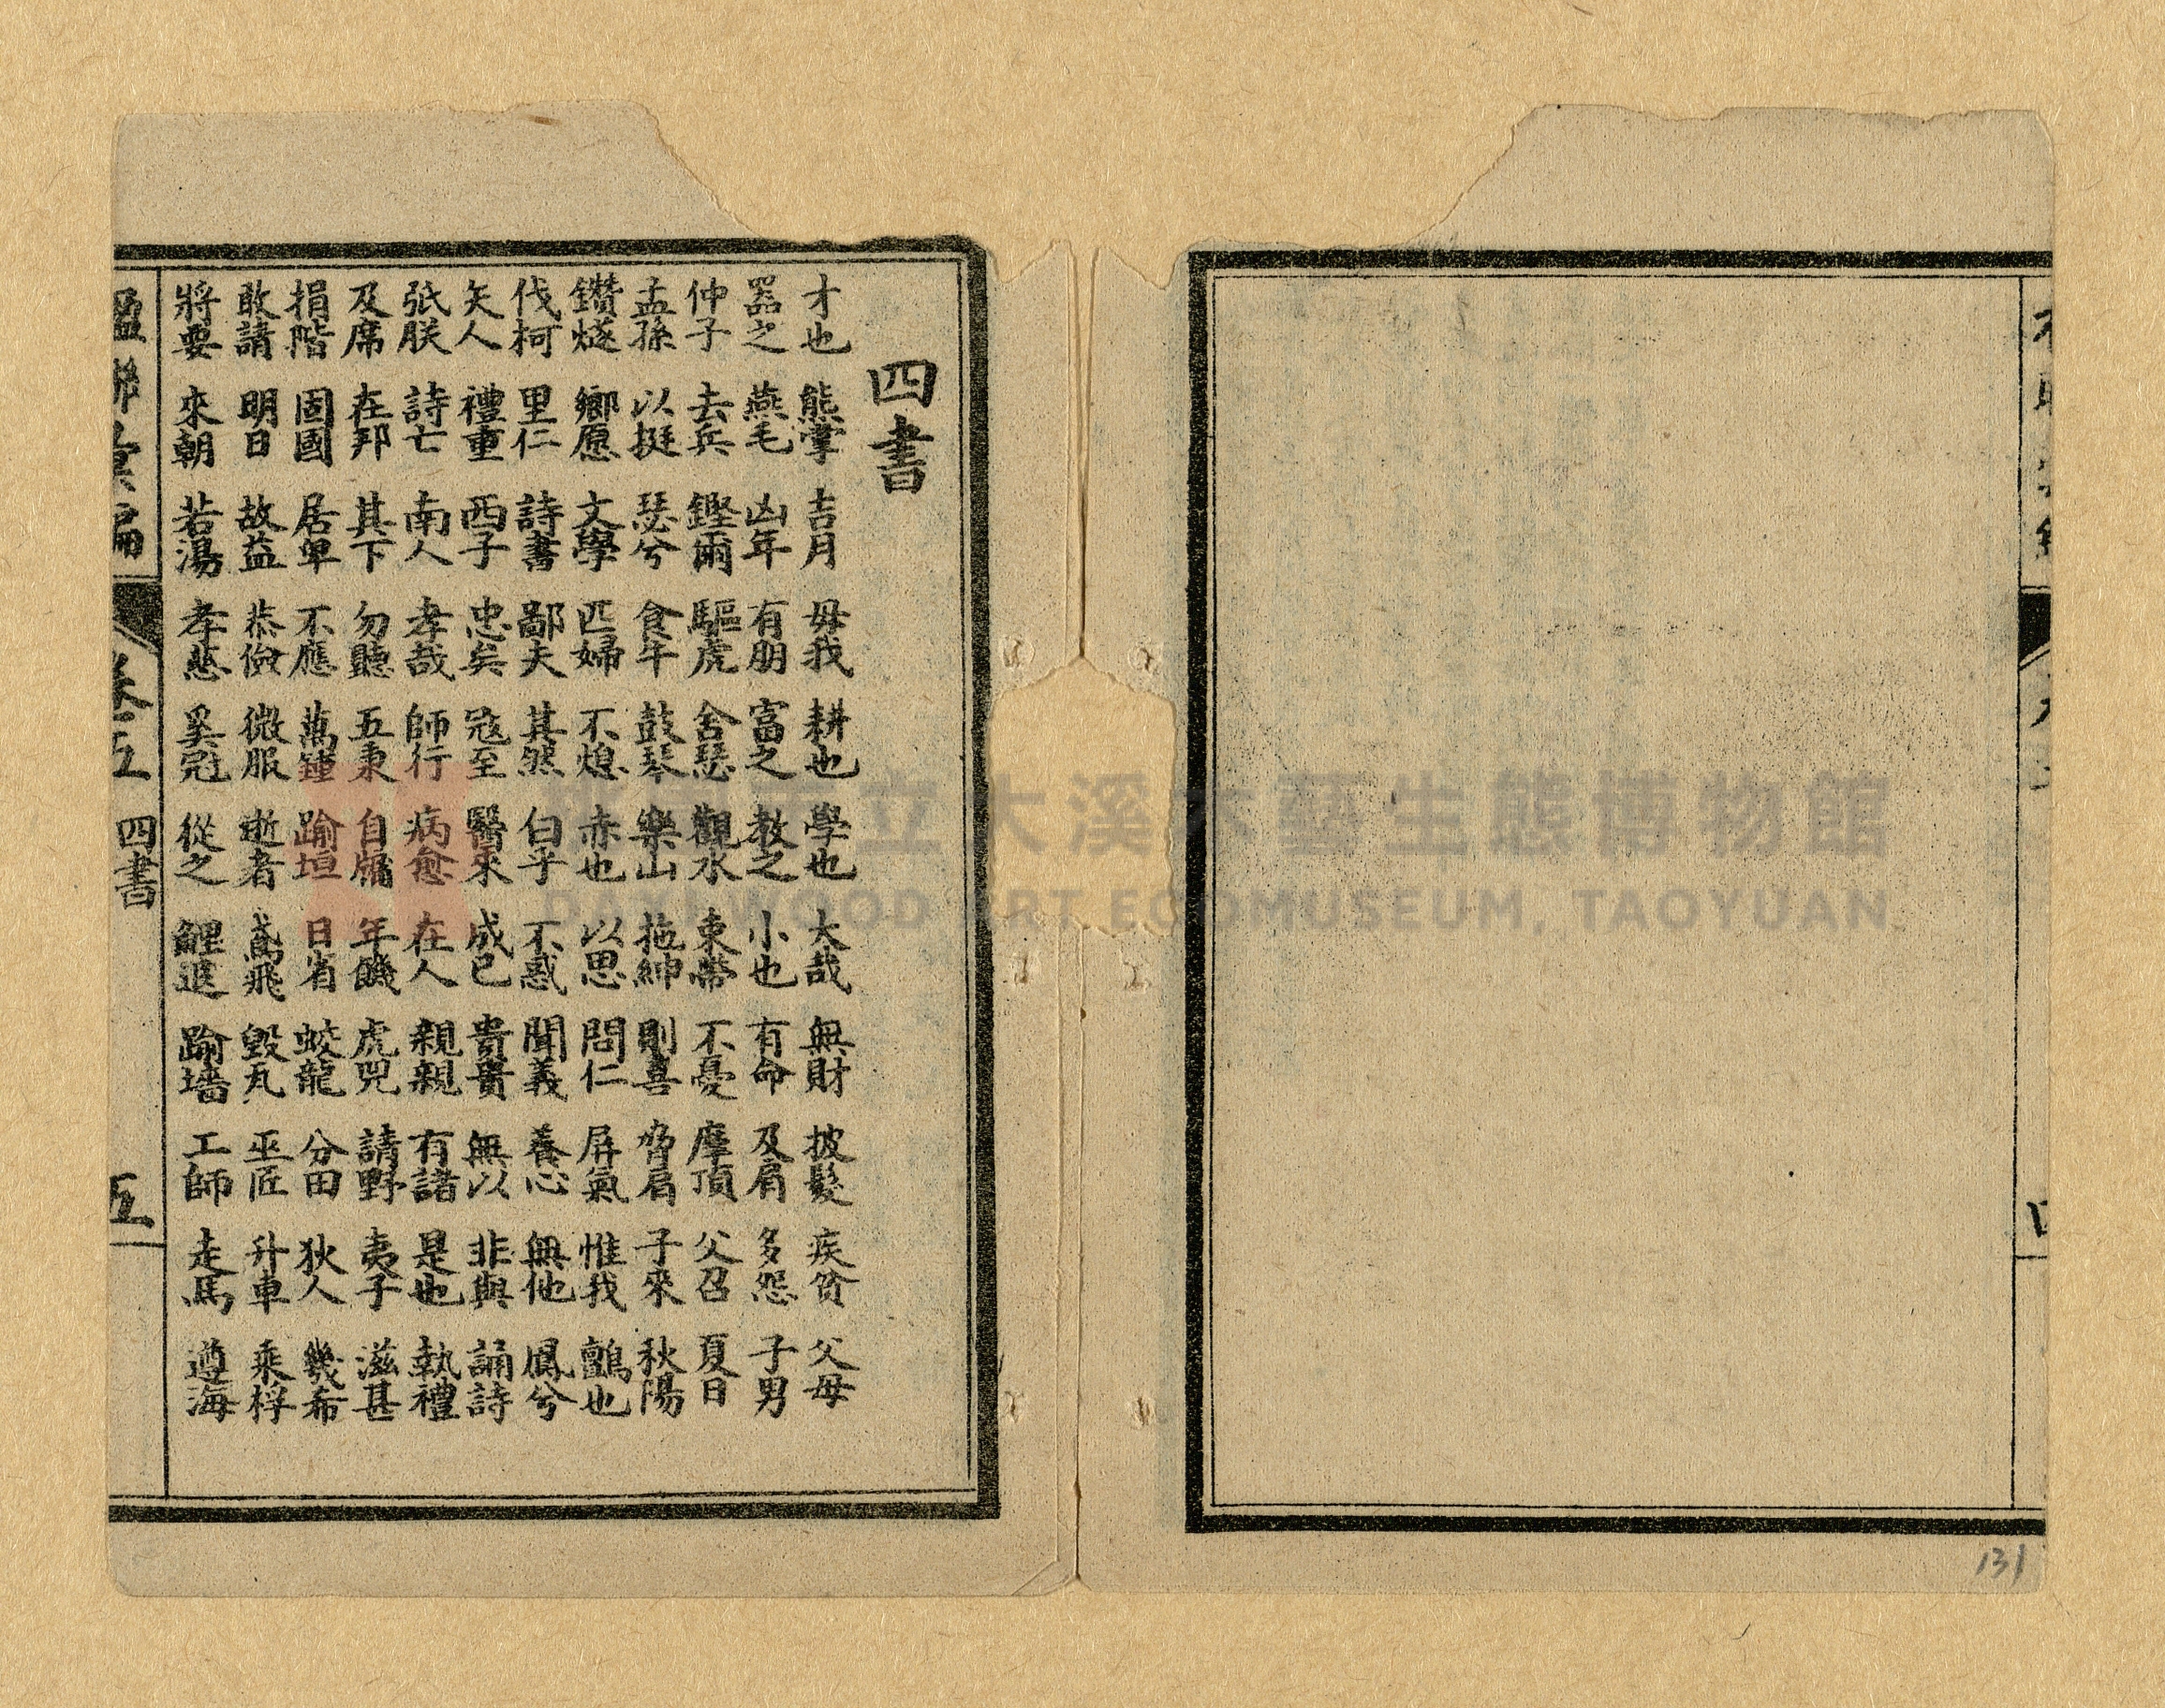 四書
才也 熊掌 吉月 毋我 耕也 學也 大哉 無財 披髮 疾貧 父母
器之 燕毛 凶年 有朋 富之 教之 小也 有命 及肩 多怨 子男
仲子 去兵 鏗爾 驅虎 舍瑟 觀水 束帶 不憂 摩頂 父召 夏日
孟孫 以挺 瑟兮 食牛 鼓琴 樂山 拖紳 則喜 脅肩 子來 秋陽
鑽燧 鄉愿 文學 匹婦 不熄 赤也 以思 問仁 屏氣 惟我 鸇也
伐柯 里仁 詩書 鄙夫 其然 白乎 不惑 聞義 養心 無他 鳳兮
矢人 禮重 西子 忠矣 寇至 醫來 成已 貴貴 無以 非與 誦詩
弤朕 詩亡 南人 孝哉 師行 病愈 在人 親親 有諸 是也 執禮
及席 在邦 其下 勿聽 五秉 自牖 年饑 虎兕 請野 夷子 滋甚
捐階 固國 居卑 不應 萬鍾 踰垣 日省 蛟龍 分田 狄人 幾希
敢請 明日 故益 恭儉 微服 逝者 鳶飛 毀瓦 巫匠 升車 乘桴
將要 來朝 若湯 孝慈 奚冠 從之 鯉退 踰墻 工師 走馬 遵海
楹聯彙編 卷五 四書 五
131
桃園市立大溪木藝生態博物館
DAXI WOOD ART ECOMUSEUM, TAOYUAN